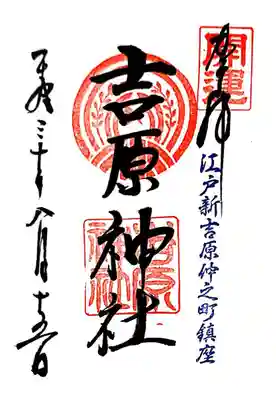 開運
奉拝
江戸新吉原仲之町鎮座
吉原神社
平成三十年八月十五日